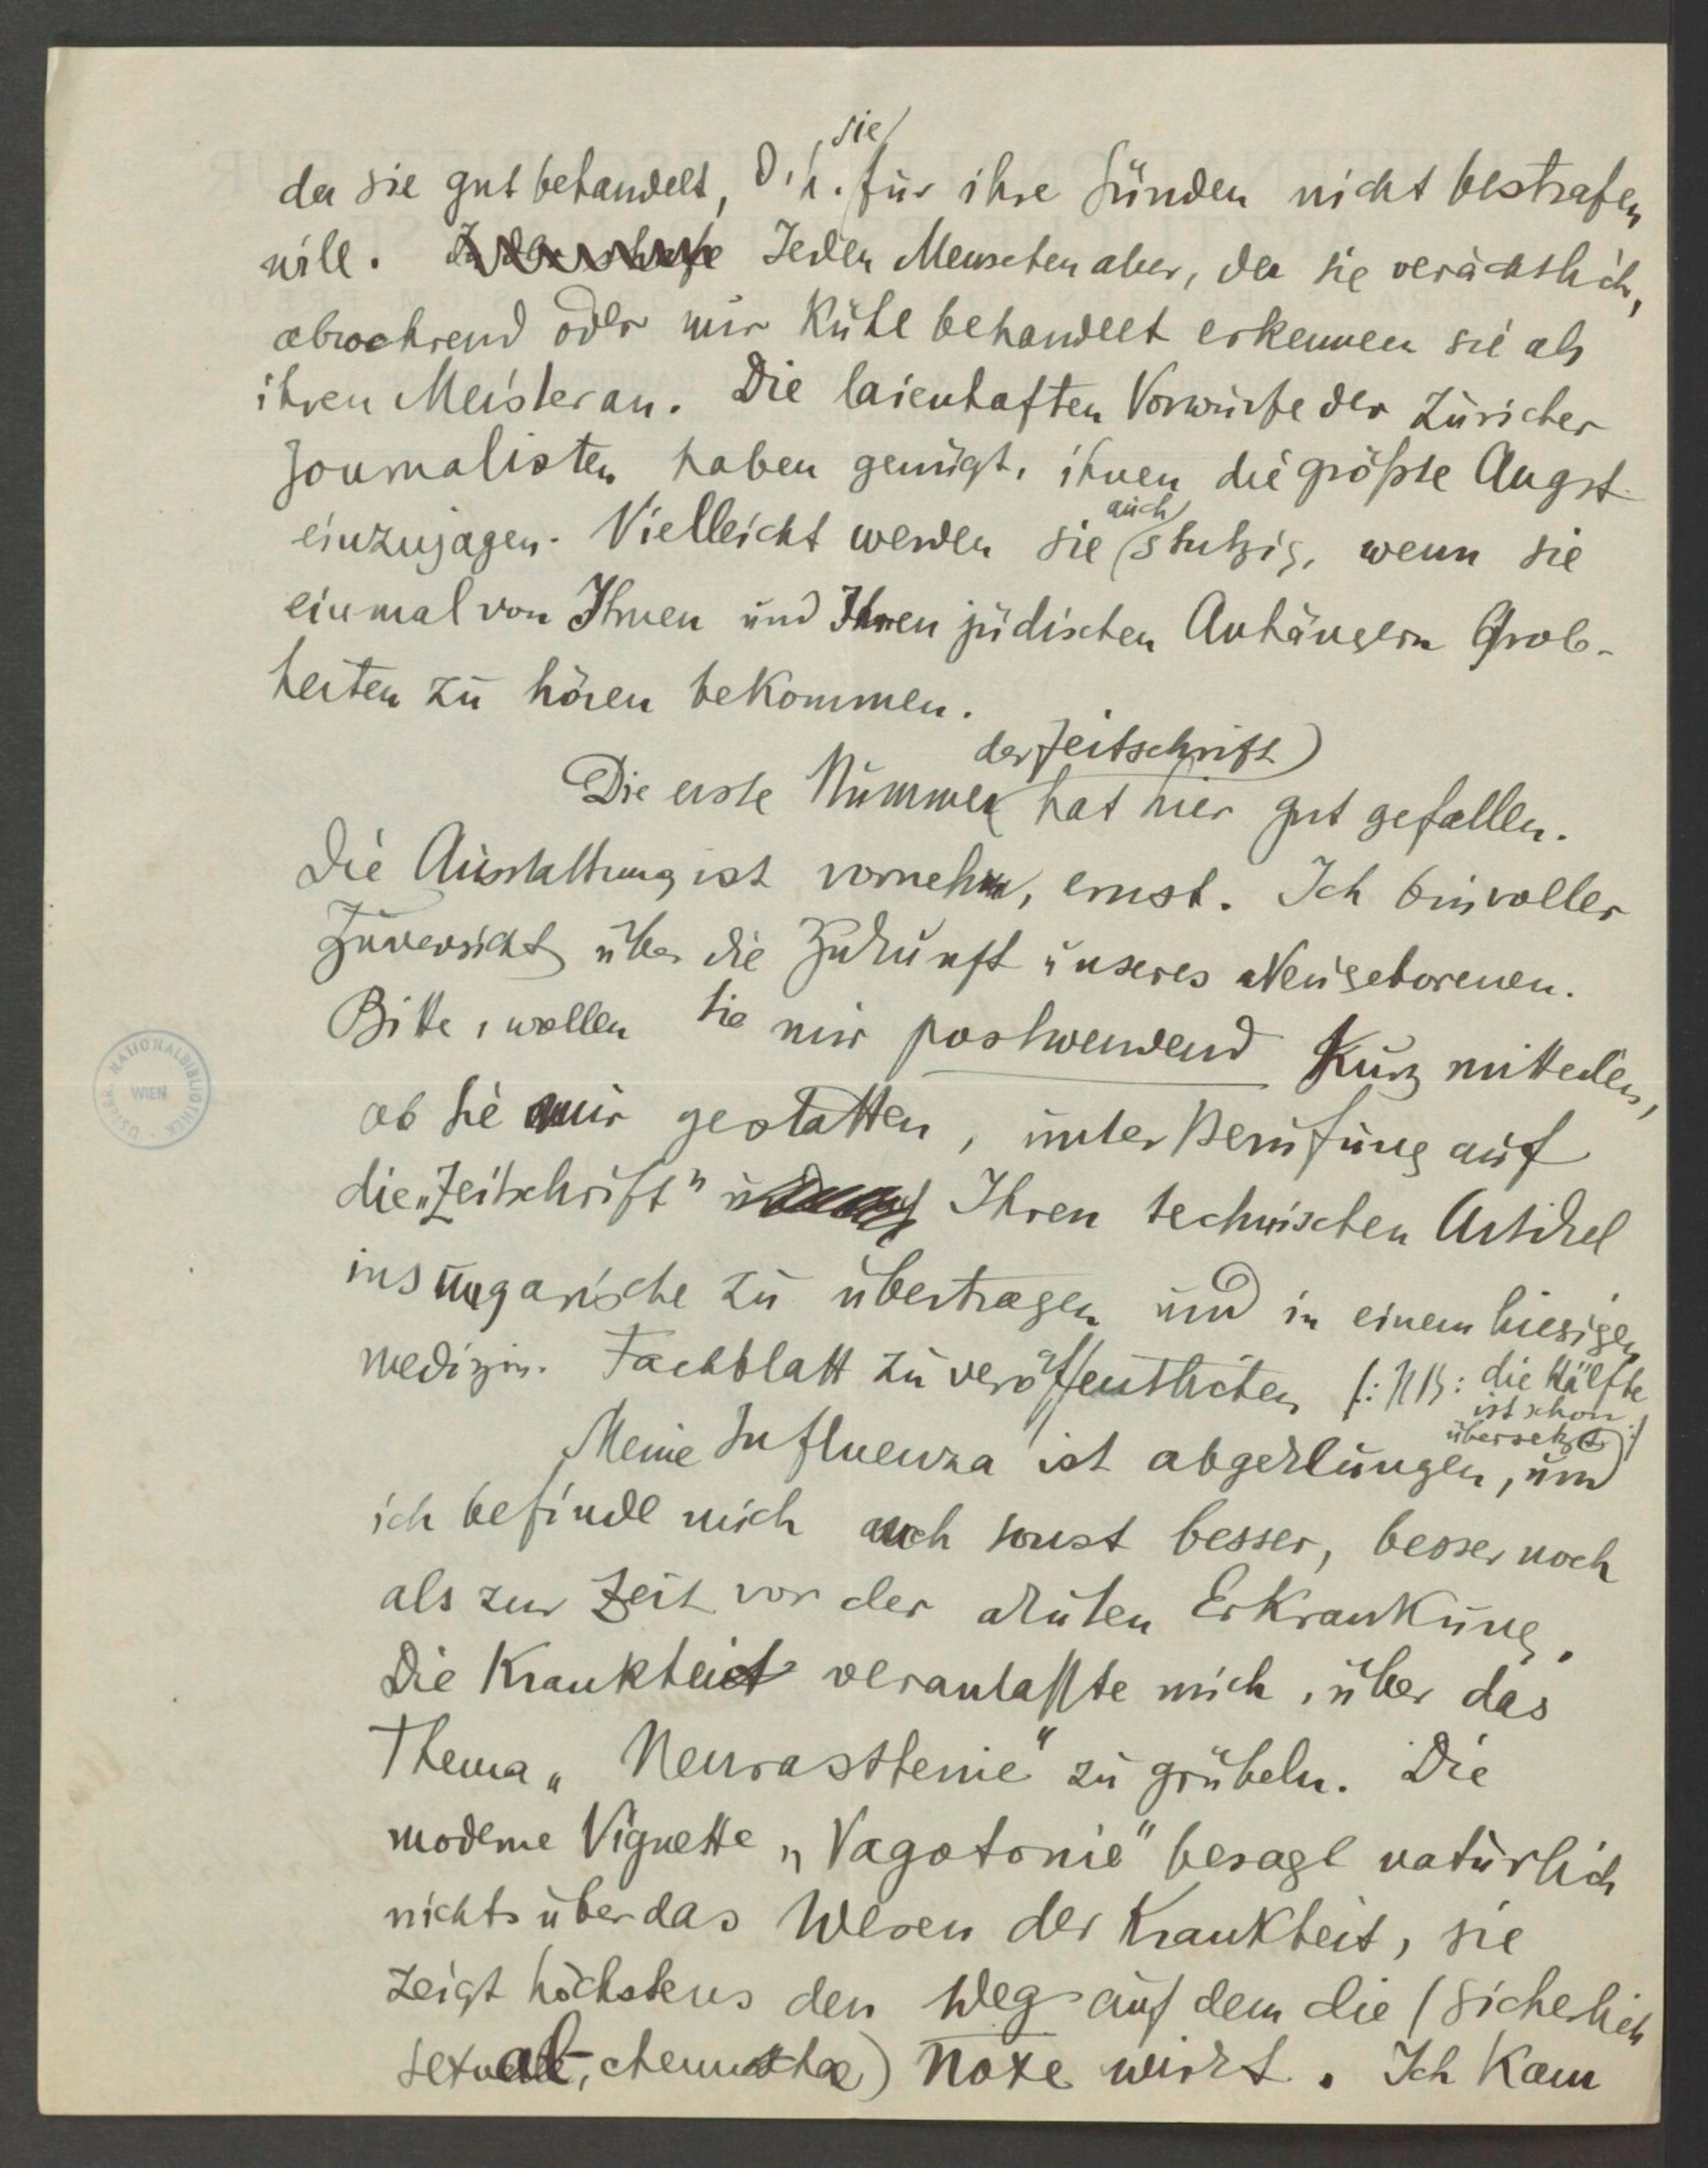 da sie gut behandelt, d.h. sie für ihre Sünden nicht bestrafen
will. Jeden Menschen aber, der sie verächtlich,
abwehrend oder nur kühl behandelt erkennen sie als
ihren Meister an. Die laienhaften Vorwürfe der Züricher
Journalisten haben genügt, ihnen die größte Angst
einzujagen. Vielleicht werden sie auch stutzig, wenn sie
einmal von Ihnen und Ihren jüdischen Anhängern Grob-
heiten zu hören bekommen.
Die erste Nummer der Zeitschrift hat hier gut gefallen.
Die Ausstattung ist vornehm, ernst. Ich bin voller
Zuversicht über die Zukunft unseres Neugeborenen.
Bitte, wollen Sie mir postwendend kurz mitteilen,
ob Sie mir gestatten, unter Berufung auf
die „Zeitschrift" Ihren technischen Artikel
ins ungarische zu übertragen und in einem hiesigen
medizin. Fachblatt zu veröffentlichen (: NB: die Hälfte
ist schon
übersetzt :)
Meine Influenza ist abgeklungen, und
ich befinde mich auch sonst besser, besser noch
als zur Zeit vor der akuten Erkrankung.
Die Krankheit veranlaßte mich, über das
Thema „Neurasthenie" zu grübeln. Die
moderne Vignette „Vagotonie" besagt natürlich
nichts über das Wesen der Krankheit, sie
zeigt höchstens den Weg auf dem die (sicherlich
sexual-, chemische) Noxe wirkt. Ich kam
ÖSTERR. NATIONALBIBLIOTHEK · WIEN